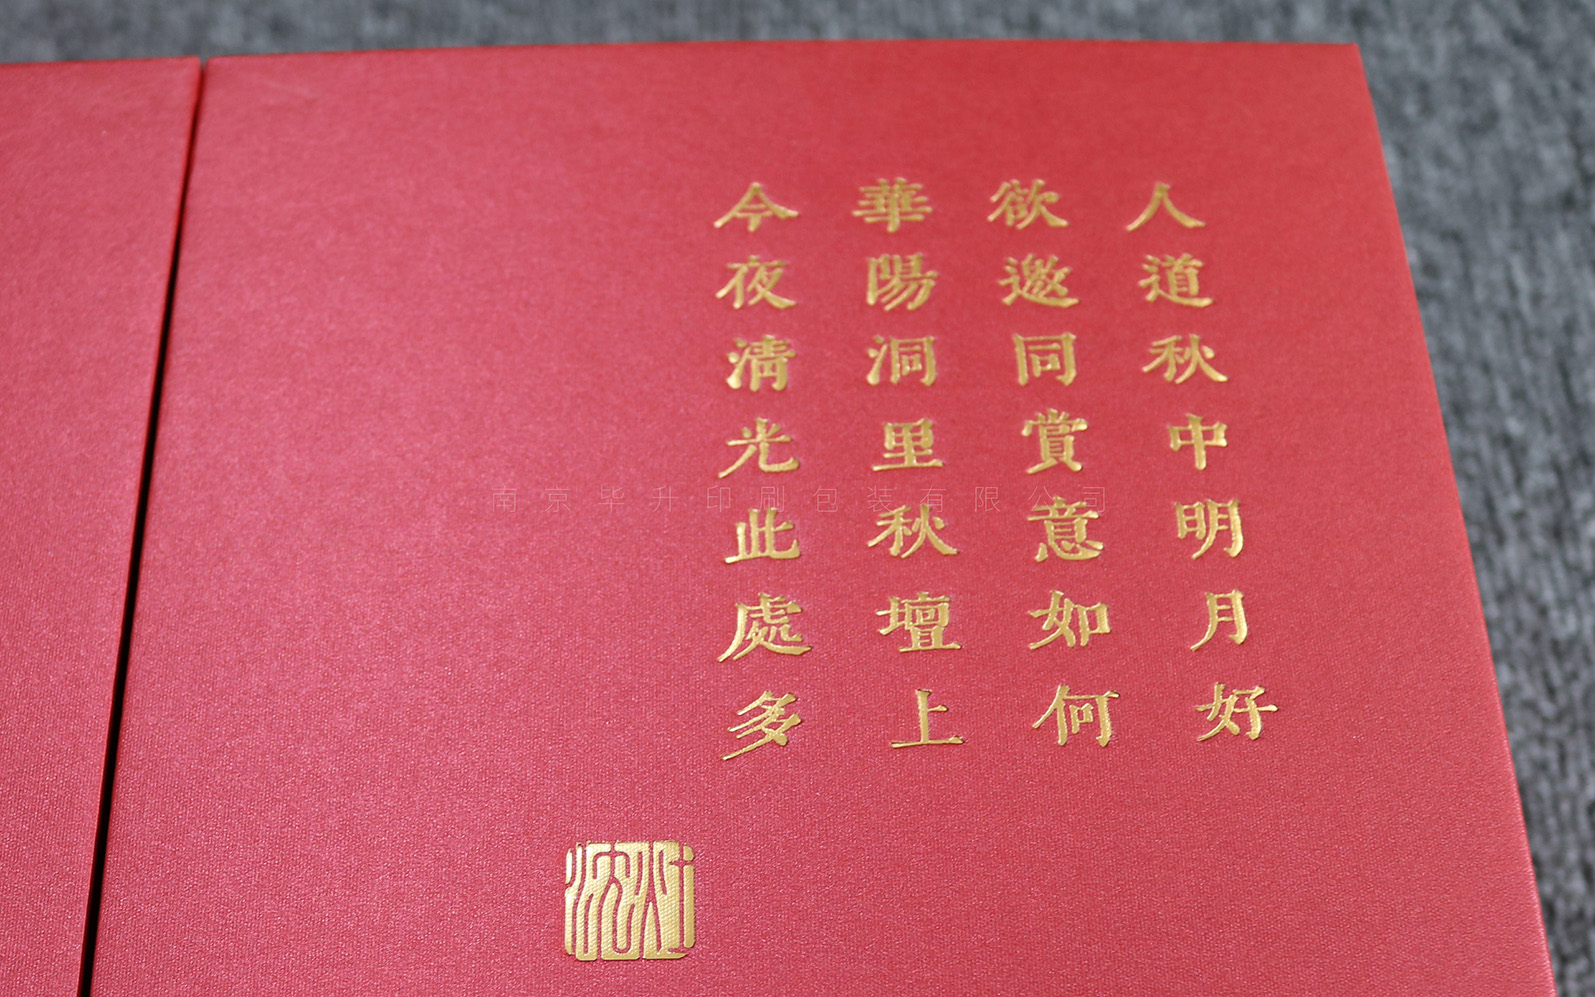 人道秋中明月好
欲邀同賞意如何
華陽洞里秋壇上
今夜清光此處多
南京毕升印刷包装有限公司